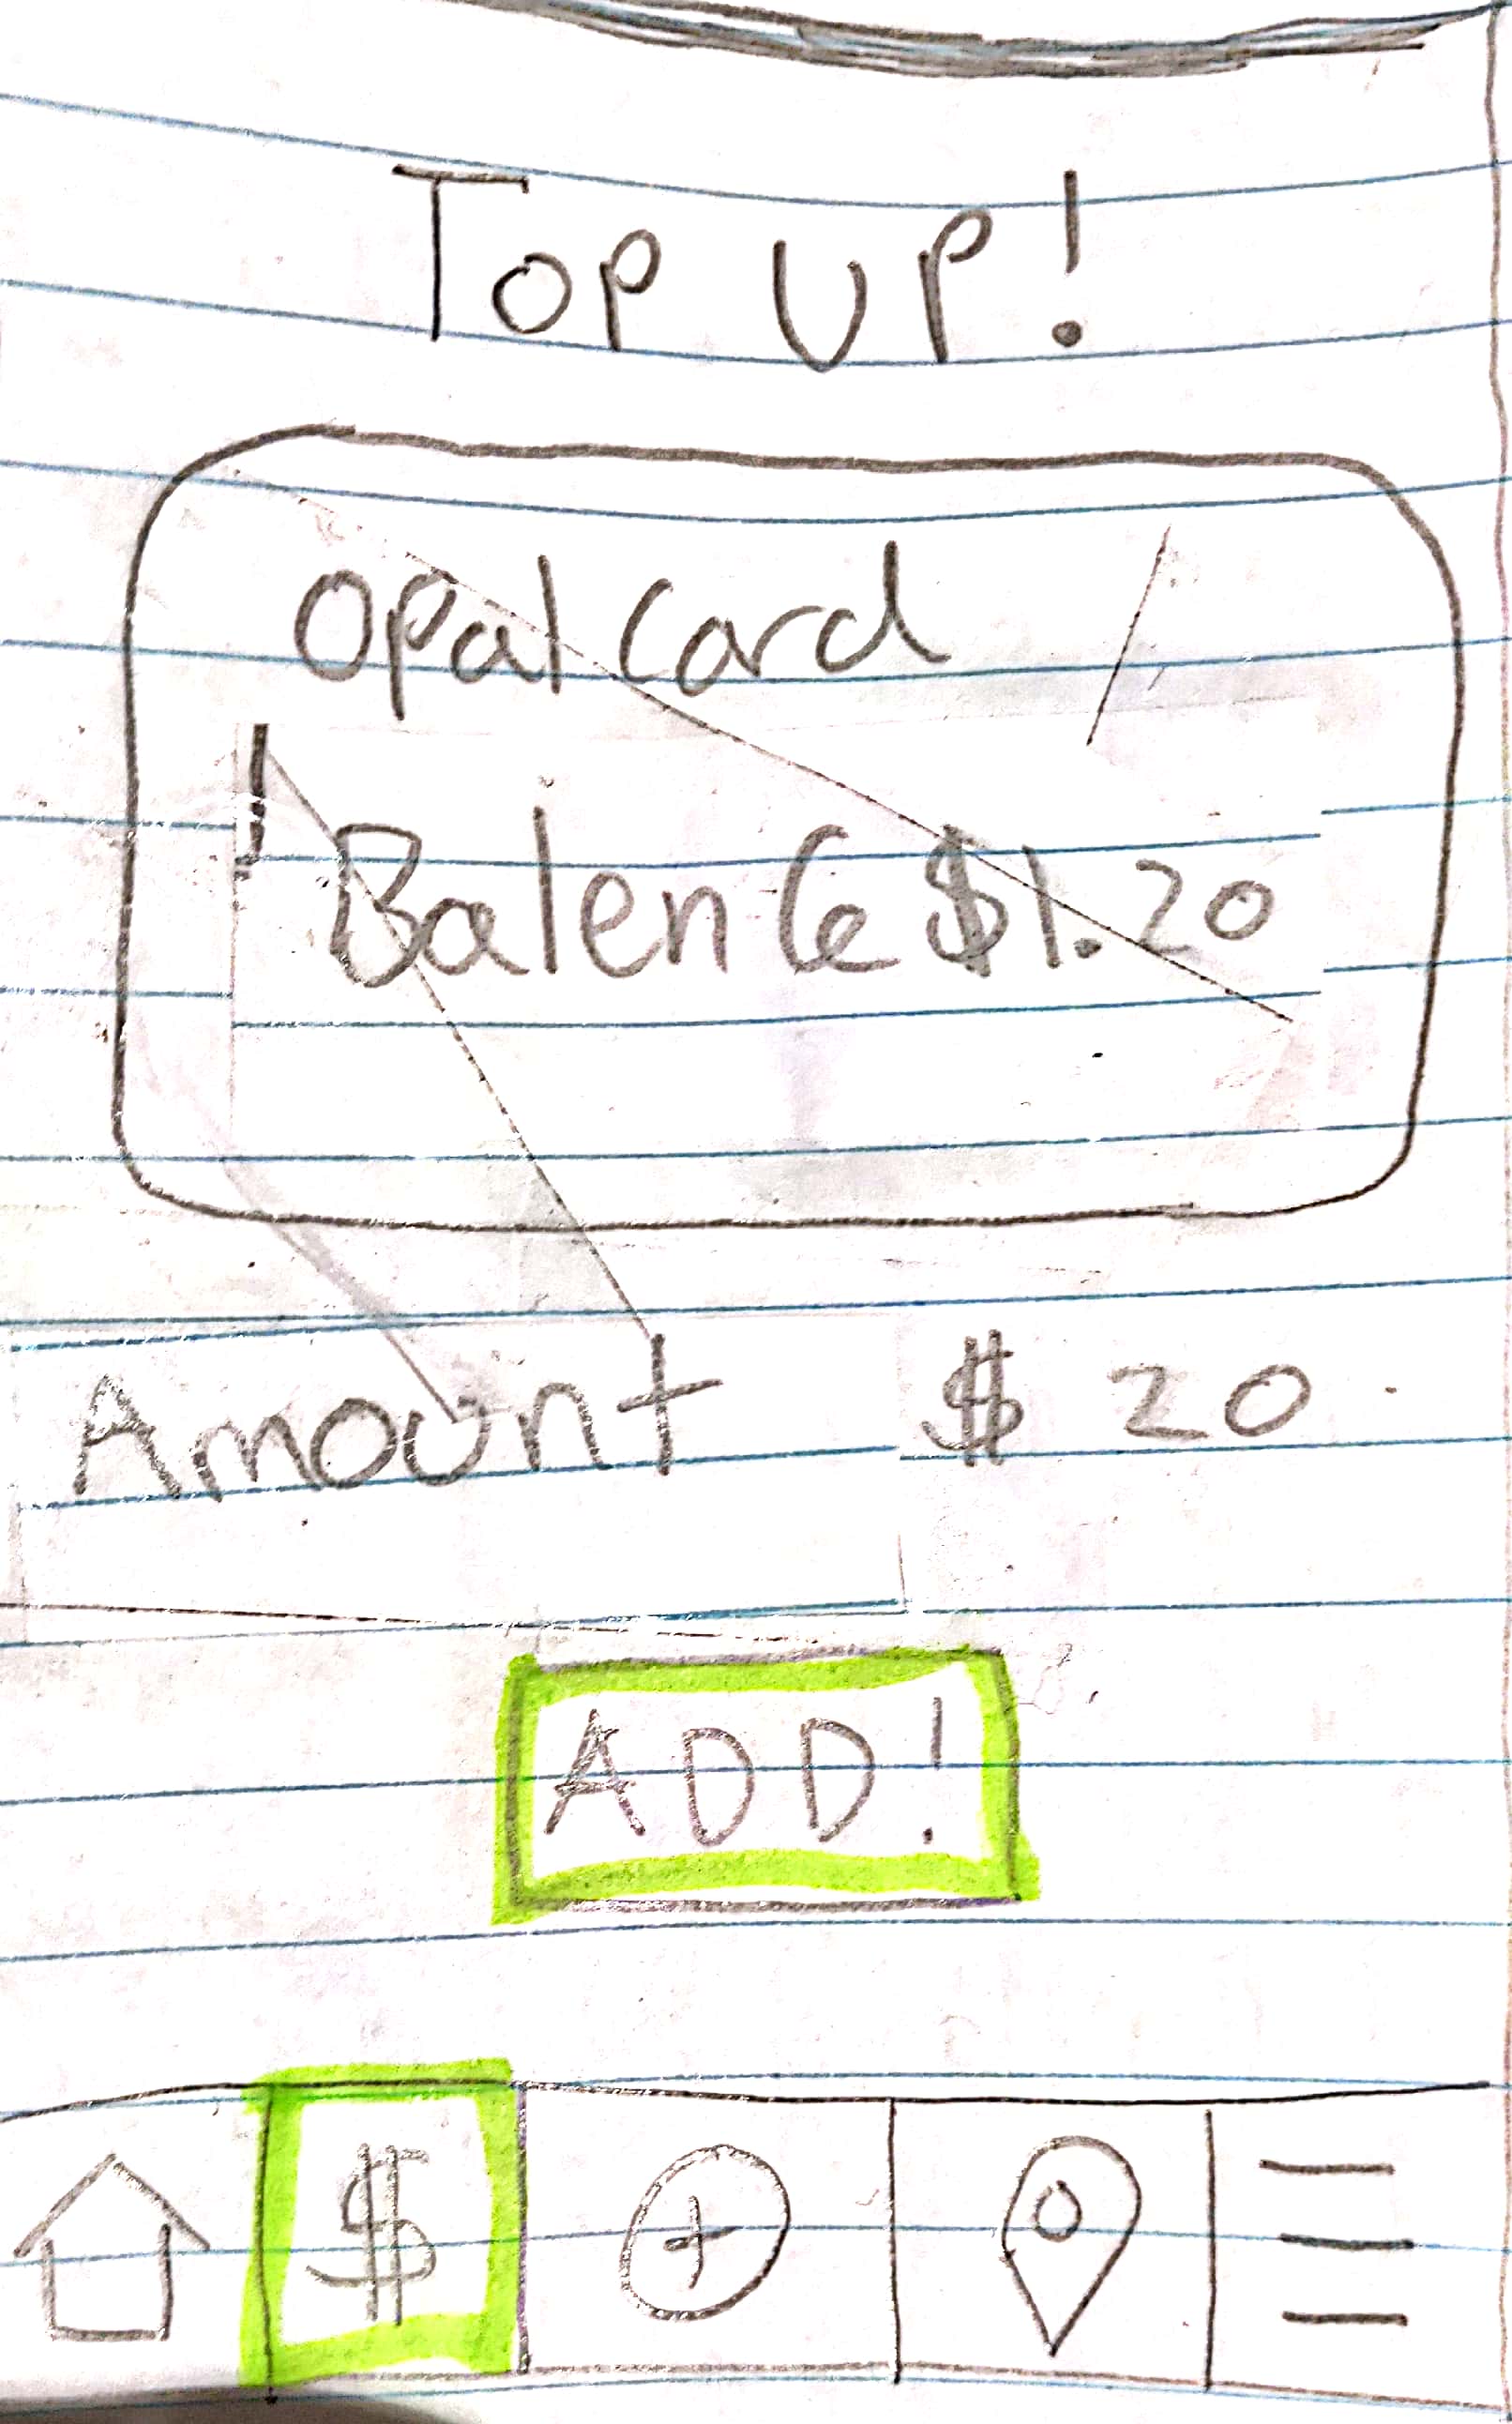 Top up!
Opal Card
Balence $1.20
Amount $ 20
ADD!
$ +